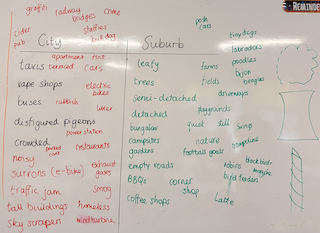 REMINDE
graffiti railway bridges crime
posh cars
cider pub
staffies bulldog
tiny dogs
labradors
poodles
bijon
beagles
City
Suburb
apartment flat
taxis terraced cars
leafy farms
vape shops electric bikes
trees fields
driveways
buses rubbish litter
semi-detached
playgrounds
disfigured pigeons
detached
power station
bungalow quiet hill swing
crowded restaurants
campsites nature trampoline
parked cars
gardens football goals
noisy
exhaust gases
empty roads robins black bird
magpie
surrons (e-bike)
BBQs corner shop bird feeders
traffic jam smog
tall buildings homeless
coffee shops Latte
sky scrapers wind turbine